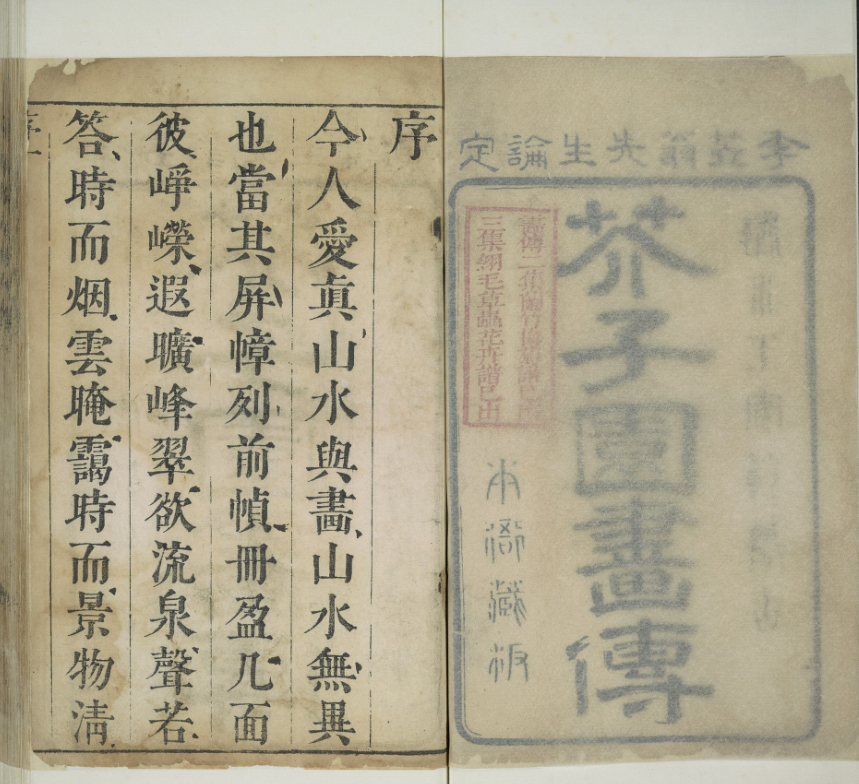 李笠翁先生論定
芥子園畫傳
畫傳二集蘭竹梅菊譜已出
三集翎毛草蟲花卉譜已出
本衙藏板
序
今人愛眞山水與畫、山水無異
也當其屏幛列前幀、冊盈几面
彼、崢嶸、遐曠、峰翠欲、流泉聲若、
答、時而烟、雲晻靄、時而景物清、